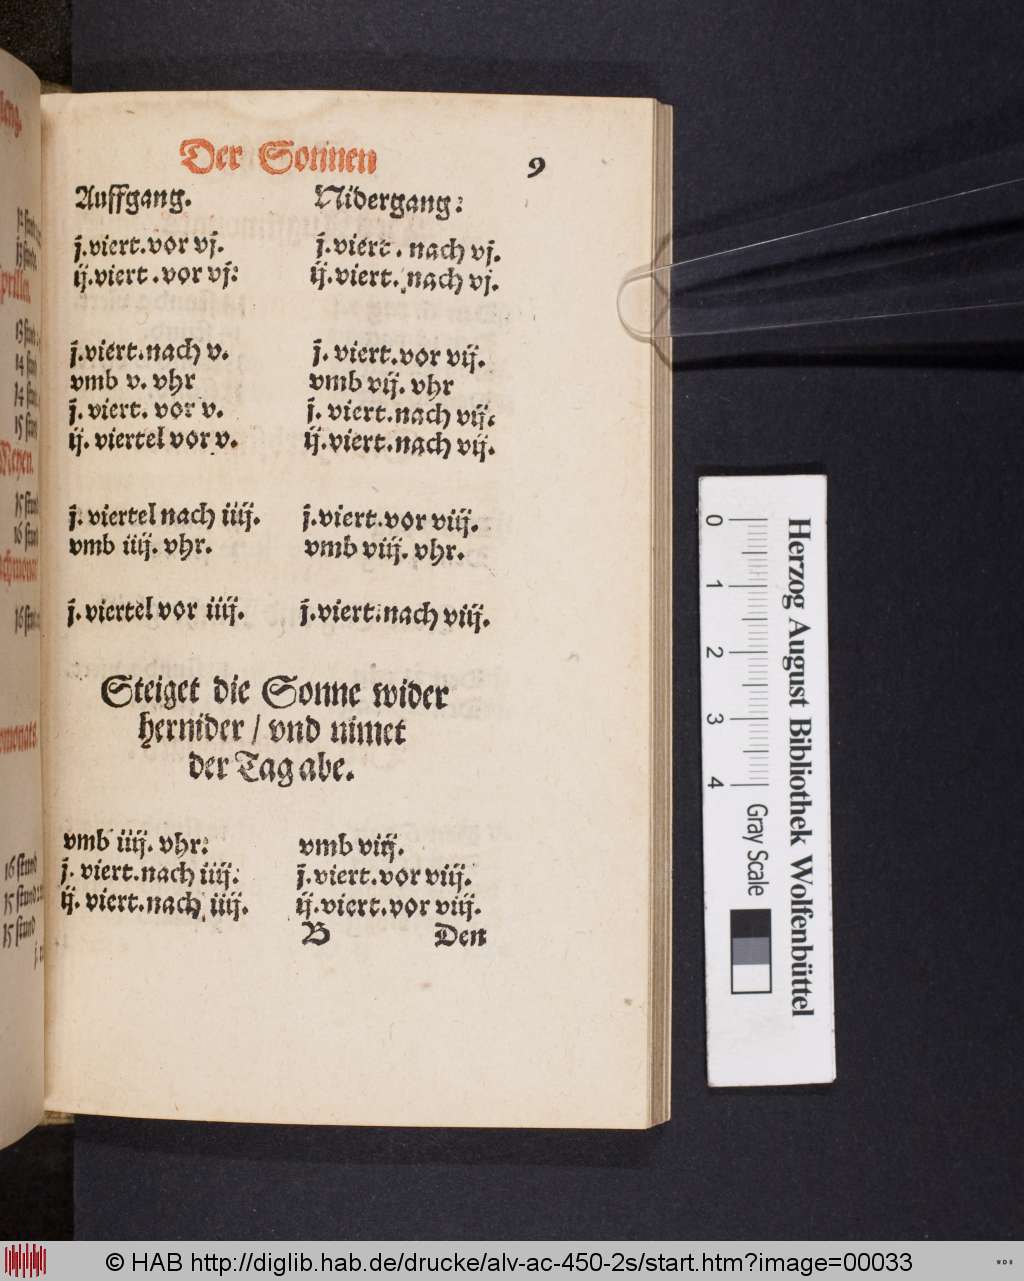 Der Sonnen 9
Auffgang. Nidergang:
j.viert.vor vj. j.viert. nach vj.
ij.viert.vor vj: ij.viert. nach vj.
j.viert.nach v. j. viert.vor vij.
vmb v. vhr vmb vij. vhr
j. viert. vor v. j. viert.nach vij.
ij. viertel vor v. ij.viert.nach vij.
j. viertel nach iiij. j.viert.vor viij.
vmb iiij. vhr. vmb viij. vhr.
j. viertel vor iiij. j.viert.nach viij.
Steiget die Sonne wider
hernider / vnd nimet
der Tag abe.
vmb iiij. vhr: vmb viij.
j. viert.nach iiij. j.viert.vor viij.
ij. viert.nach iiij. ij.viert.vor viij.
B Den
16 stund
15 stund
15 stund
0 1 2 3 4
Gray Scale
Herzog August Bibliothek Wolfenbüttel
© HAB http://diglib.hab.de/drucke/alv-ac-450-2s/start.htm?image=00033